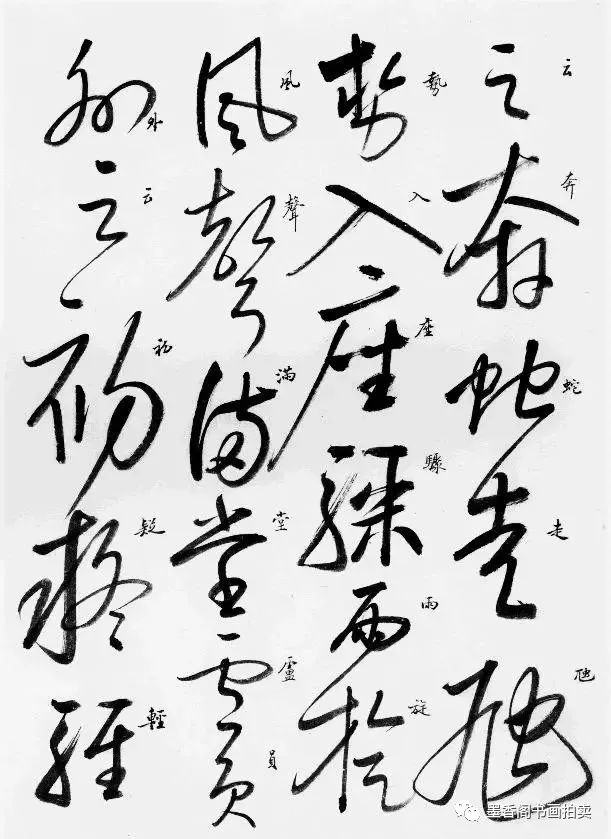 云奔蛇走虺
云奔蛇走虺
勢入座驟雨旋
勢入座驟雨旋
風聲滿堂盧員
風聲滿堂盧員
外云初疑輕
外云初疑輕
墨香阁书画拍卖